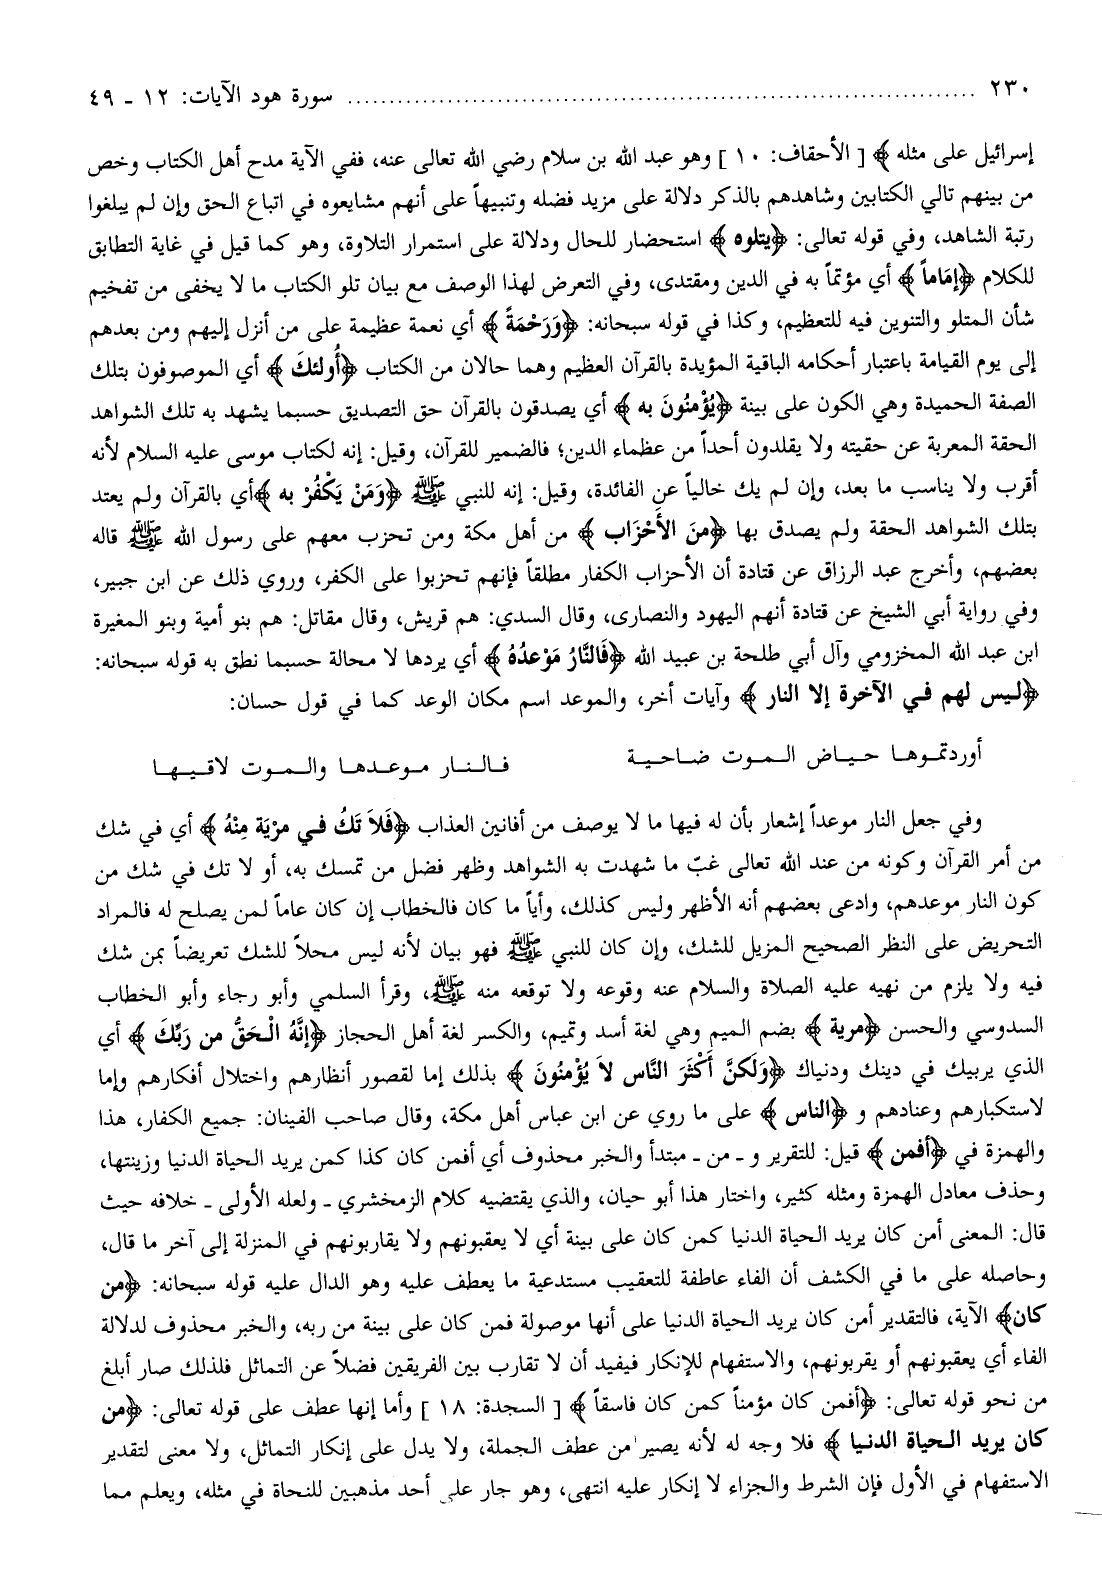 ٢٣٠ ........................................ سورة هود الآيات: ١٢ ـ ٤٩
إسرائيل على مثله ﴾ [ الأحقاف: ١٠ ] وهو عبد الله بن سلام رضي الله تعالى عنه، ففي الآية مدح أهل الكتاب وخص
من بينهم تالي الكتابين وشاهدهم بالذكر دلالة على مزيد فضله وتنبيهاً على أنهم مشايعوه في اتباع الحق وإن لم يبلغوا
رتبة الشاهد، وفي قوله تعالى: ﴿يتلوه ﴾ استحضار للحال ودلالة على استمرار التلاوة، وهو كما قيل في غاية التطابق
للكلام ﴿إمَاماً ﴾ أي مؤتمّاً به في الدين ومقتدى، وفي التعرض لهذا الوصف مع بيان تلو الكتاب ما لا يخفى من تفخيم
شأن المتلو والتنوين فيه للتعظيم، وكذا في قوله سبحانه: ﴿وَرَحْمَةً ﴾ أي نعمة عظيمة على من أنزل إليهم ومن بعدهم
إلى يوم القيامة باعتبار أحكامه الباقية المؤيدة بالقرآن العظيم وهما حالان من الكتاب ﴿أُولئكَ ﴾ أي الموصوفون بتلك
الصفة الحميدة وهي الكون على بينة ﴿يُؤْمنُونَ به ﴾ أي يصدقون بالقرآن حق التصديق حسبما يشهد به تلك الشواهد
الحقة المعربة عن حقيته ولا يقلدون أحداً من عظماء الدين؛ فالضمير للقرآن، وقيل: إنه لكتاب موسى عليه السلام لأنه
أقرب ولا يناسب ما بعد، وإن لم يك خالياً عن الفائدة، وقيل: إنه للنبي ﷺ ﴿وَمَنْ يَكْفُرْ به ﴾أي بالقرآن ولم يعتد
بتلك الشواهد الحقة ولم يصدق بها ﴿منَ الأَحْزَاب ﴾ من أهل مكة ومن تحزب معهم على رسول الله ﷺ قاله
بعضهم، وأخرج عبد الرزاق عن قتادة أن الأحزاب الكفار مطلقاً فإنهم تحزبوا على الكفر، وروي ذلك عن ابن جبير،
وفي رواية أبي الشيخ عن قتادة أنهم اليهود والنصارى، وقال السدي: هم قريش، وقال مقاتل: هم بنو أمية وبنو المغيرة
ابن عبد الله المخزومي وآل أبي طلحة بن عبيد الله ﴿فَالنَّارُ مَوْعدُهُ ﴾ أي يردها لا محالة حسبما نطق به قوله سبحانه:
﴿ليس لهم في الآخرة إلا النار ﴾ وآيات أخر، والموعد اسم مكان الوعد كما في قول حسان:
أوردتموها حياض الموت ضاحية فالنار موعدها والموت لاقيها
وفي جعل النار موعداً إشعار بأن له فيها ما لا يوصف من أفانين العذاب ﴿فَلاَ تَكُ في مرْيَة مِنْهُ ﴾ أي في شك
من أمر القرآن وكونه من عند الله تعالى غبّ ما شهدت به الشواهد وظهر فضل من تمسك به، أو لا تك في شك من
كون النار موعدهم، وادعى بعضهم أنه الأظهر وليس كذلك، وأياً ما كان فالخطاب إن كان عاماً لمن يصلح له فالمراد
التحريض على النظر الصحيح المزيل للشك، وإن كان للنبي ﷺ فهو بيان لأنه ليس محلاً للشك تعريضاً بمن شك
فيه ولا يلزم من نهيه عليه الصلاة والسلام عنه وقوعه ولا توقعه منه ﷺ، وقرأ السلمي وأبو رجاء وأبو الخطاب
السدوسي والحسن ﴿مرية ﴾ بضم الميم وهي لغة أسد وتميم، والكسر لغة أهل الحجاز ﴿إنَّهُ الْحَقُّ من رَبِّكَ ﴾ أي
الذي يربيك في دينك ودنياك ﴿وَلَكنَّ أَكْثَرَ النَّاس لاَ يُؤْمنُونَ ﴾ بذلك إما لقصور أنظارهم واختلال أفكارهم وإما
لاستكبارهم وعنادهم و ﴿الناس ﴾ على ما روي عن ابن عباس أهل مكة، وقال صاحب الفينان: جميع الكفار، هذا
والهمزة في ﴿أفمن ﴾ قيل: للتقرير و ـ من ـ مبتدأ والخبر محذوف أي أفمن كان كذا كمن يريد الحياة الدنيا وزينتها،
وحذف معادل الهمزة ومثله كثير، واختار هذا أبو حيان، والذي يقتضيه كلام الزمخشري ـ ولعله الأولى ـ خلافه حيث
قال: المعنى أمن كان يريد الحياة الدنيا كمن كان على بينة أي لا يعقبونهم ولا يقاربونهم في المنزلة إلى آخر ما قال،
وحاصله على ما في الكشف أن الفاء عاطفة للتعقيب مستدعية ما يعطف عليه وهو الدال عليه قوله سبحانه: ﴿من
كان﴾ الآية، فالتقدير أمن كان يريد الحياة الدنيا على أنها موصولة فمن كان على بينة من ربه، والخبر محذوف لدلالة
الفاء أي يعقبونهم أو يقربونهم، والاستفهام للإنكار فيفيد أن لا تقارب بين الفريقين فضلاً عن التماثل فلذلك صار أبلغ
من نحو قوله تعالى: ﴿أفمن كان مؤمناً كمن كان فاسقاً ﴾ [ السجدة: ١٨ ] وأما إنها عطف على قوله تعالى: ﴿من
كان يريد الحياة الدنيا ﴾ فلا وجه له لأنه يصير من عطف الجملة، ولا يدل على إنكار التماثل، ولا معنى لتقدير
الاستفهام في الأول فإن الشرط والجزاء لا إنكار عليه انتهى، وهو جار على أحد مذهبين للنحاة في مثله، ويعلم مما